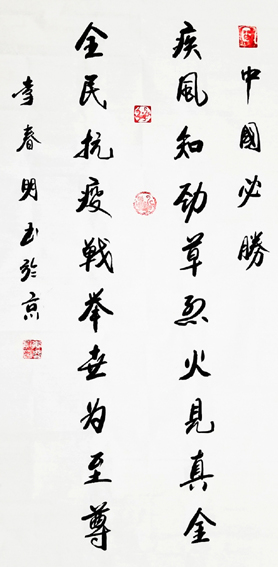 中國必勝
疾風知劲草烈火見真金
全民抗疫戦举世为至尊
李春明书於京